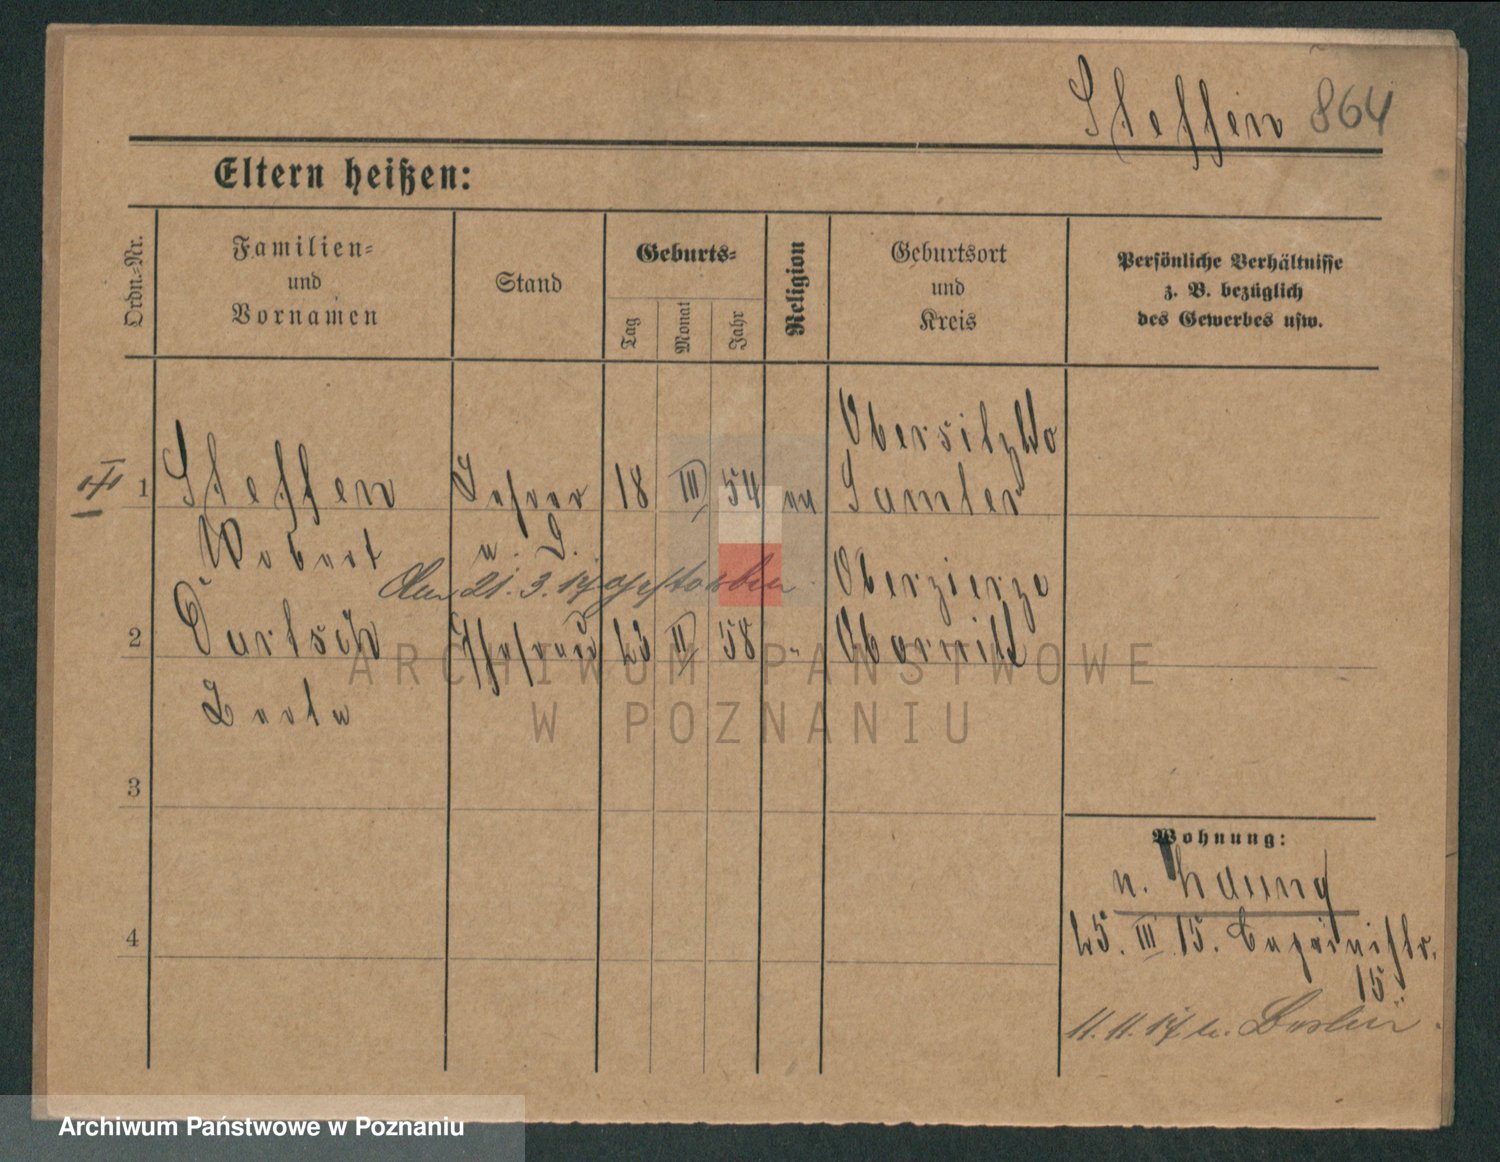 Steffen 864
Eltern heißen:
Ordn.=Nr.
Familien=
und
Vornamen
Stand
Geburts=
Tag
Monat
Jahr
Religion
Geburtsort
und
Kreis
Persönliche Verhältnisse
z. B. bezüglich
des Gewerbes usw.
Obersitzko
1 Steffen 18 III 54 Samter
Robert
u. D.
Den 21.3.17 gestorben.
Oberzierze
2 Ehefrau 23 II 58 " Obornik
ARCHIWUM PAŃSTWOWE
W POZNANIU
3
Wohnung:
n.
4
25. III. 15.
15
11.11.17 n. Berlin.
Archiwum Państwowe w Poznaniu